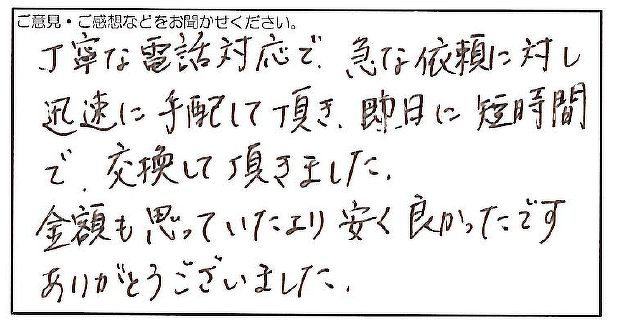 ご意見・ご感想などをお聞かせください。
丁寧な電話対応で、急な依頼に対し
迅速に手配して頂き、即日に短時間
で、交換して頂きました。
金額も思っていたより安く良かったです
ありがとうございました。